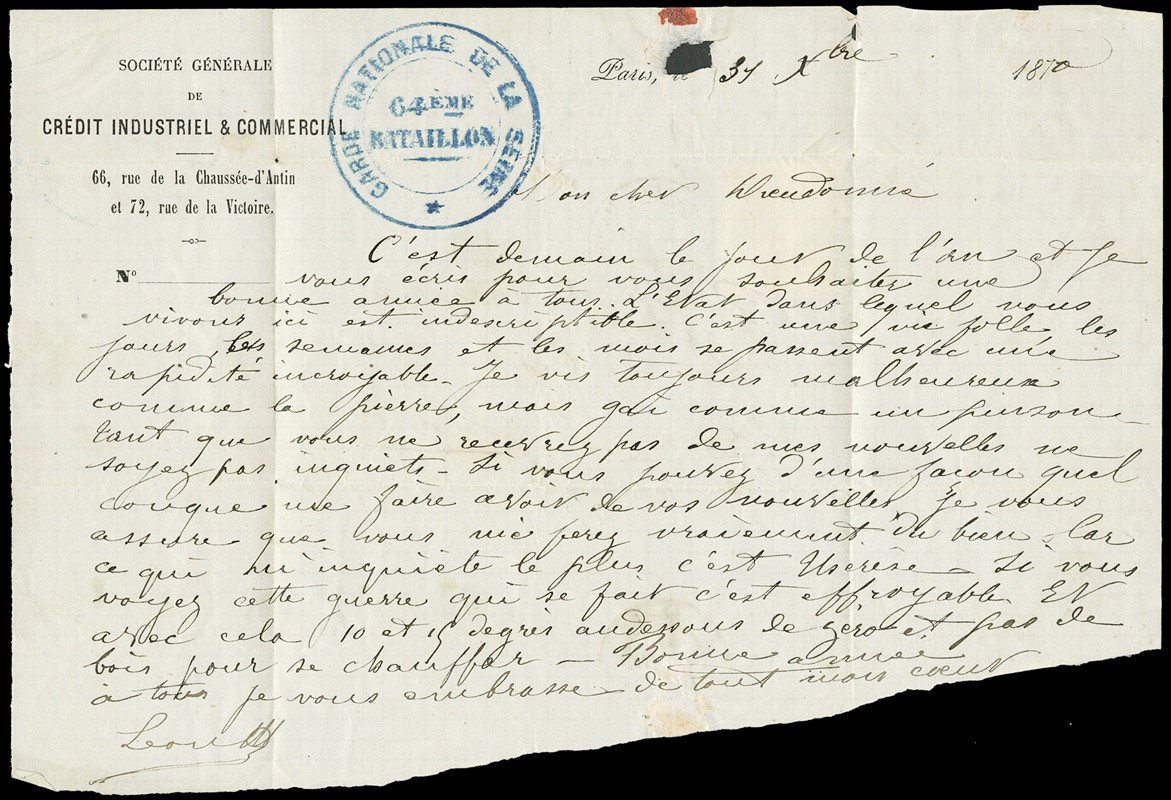 SOCIÉTÉ GÉNÉRALE
DE
CRÉDIT INDUSTRIEL & COMMERCIAL
66, rue de la Chaussée-d'Antin
et 72, rue de la Victoire.
N°
GARDE NATIONALE DE LA SEINE
64ÈME
BATAILLON
Paris, le 31 Xbre 1870
Mon cher Dieudonné
C'est demain le jour de l'an et je
vous écris pour vous souhaiter une
bonne année à tous. L'Etat dans lequel nous
vivons ici est indescriptible. C'est une vie folle les
jours, les semaines et les mois se passent avec une
rapidité incroyable. Je vis toujours malheureux
comme la pierre, mais gai comme un pinson
tant que vous ne recevrez pas de mes nouvelles ne
soyez pas inquiets. Si vous pouvez d'une façon quel
conque me faire avoir de vos nouvelles, je vous
assure que vous me ferez vraiement du bien. Car
ce qui m'inquiète le plus c'est Therese. Si vous
voyez cette guerre qui se fait c'est effroyable. Et
avec cela 10 et 15 degrés audessous de zéro et pas de
bois pour se chauffer — Bonne année
à tous je vous embrasse de tout mon coeur
Leon